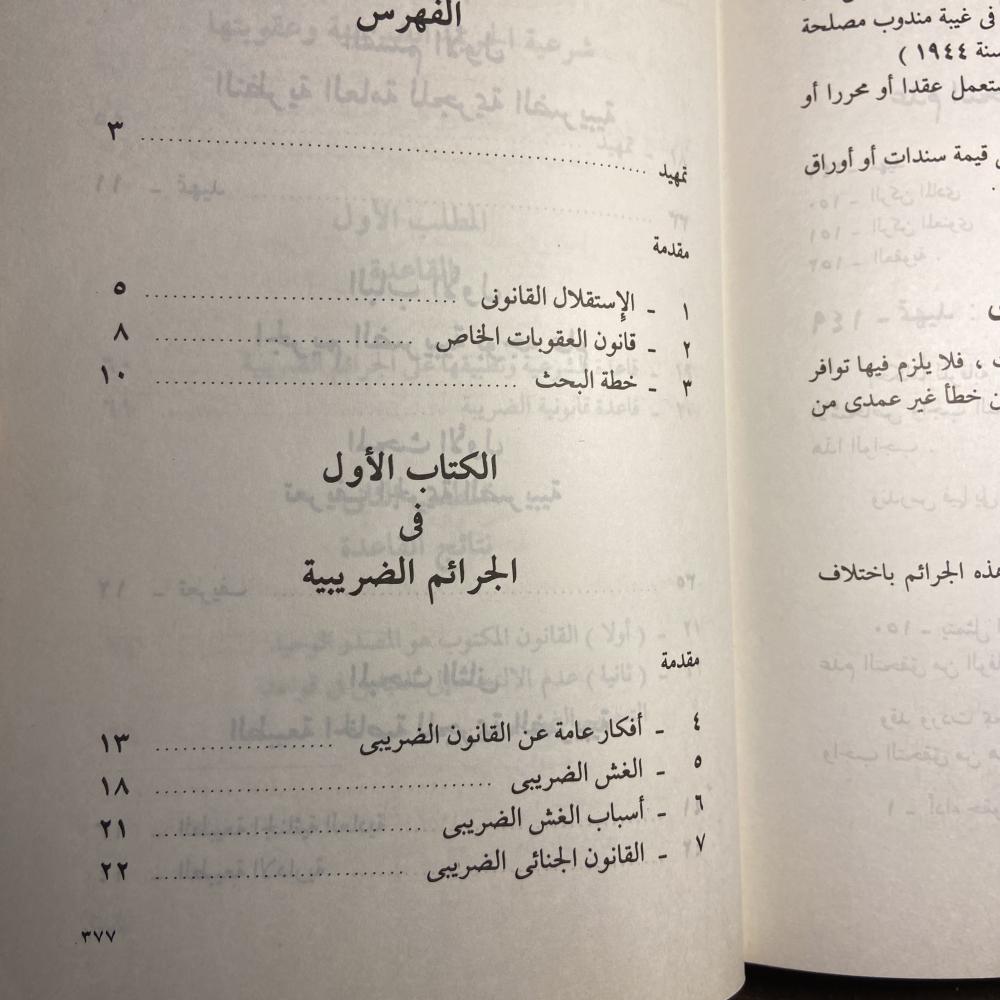 فى غيبة مندوب مصلحة
سنة ١٩٤٤ )
عقدا أو محررا أو
قيمة سندات أو أوراق
، فلا يلزم فيها توافر
خطأ غير عمدى من
هذه الجرائم باختلاف
الفهرس
تمهيد ........................ ٣
مقدمة
١ ـ الإستقلال القانونى ........................ ٥
٢ ـ قانون العقوبات الخاص ........................ ٨
٣ ـ خطة البحث ........................ ١٠
الكتاب الأول
فى
الجرائم الضريبية
مقدمة
٤ ـ أفكار عامة عن القانون الضريبى ........................ ١٣
٥ ـ الغش الضريبى ........................ ١٨
٦ ـ أسباب الغش الضريبى ........................ ٢١
٧ ـ القانون الجنائى الضريبى ........................ ٢٢
٣٧٧